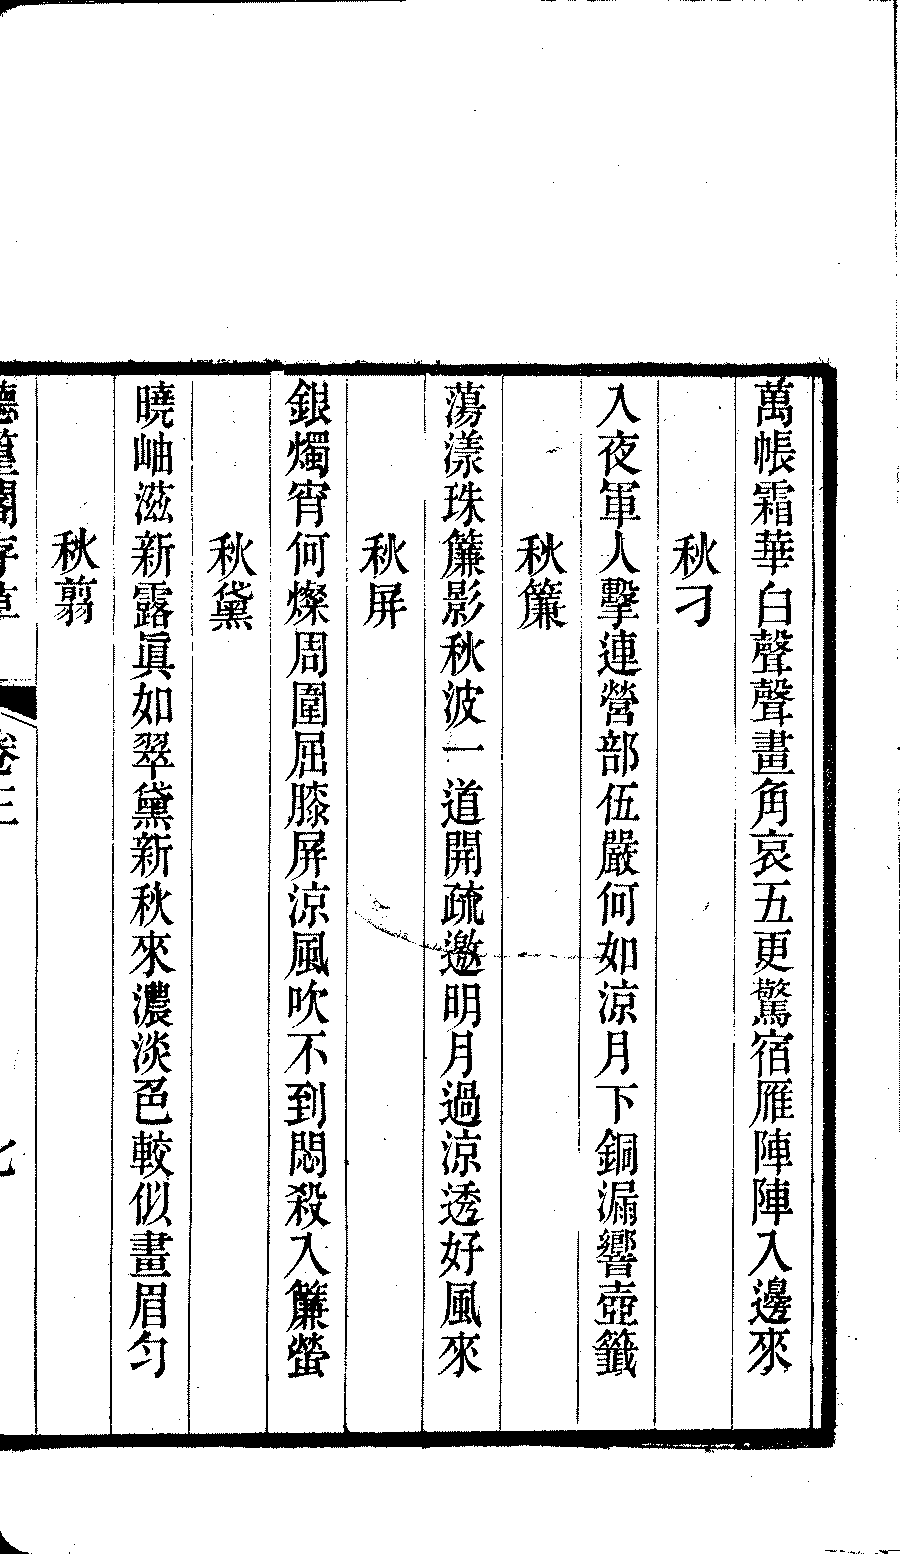 萬帳霜華白聲聲畫角哀五更驚宿雁陣陣入邊來
秋刁
入夜軍人擊連營部伍嚴何如涼月下銅漏響壺籤
秋簾
蕩漾珠簾影秋波一道開疏邀明月過涼透好風來
秋屏
銀燭宵何燦周圍屈膝屏涼風吹不到悶殺入簾螢
秋黛
曉岫滋新露眞如翠黛新秋來濃淡色較似畫眉匀
秋翦
閣存草 卷三